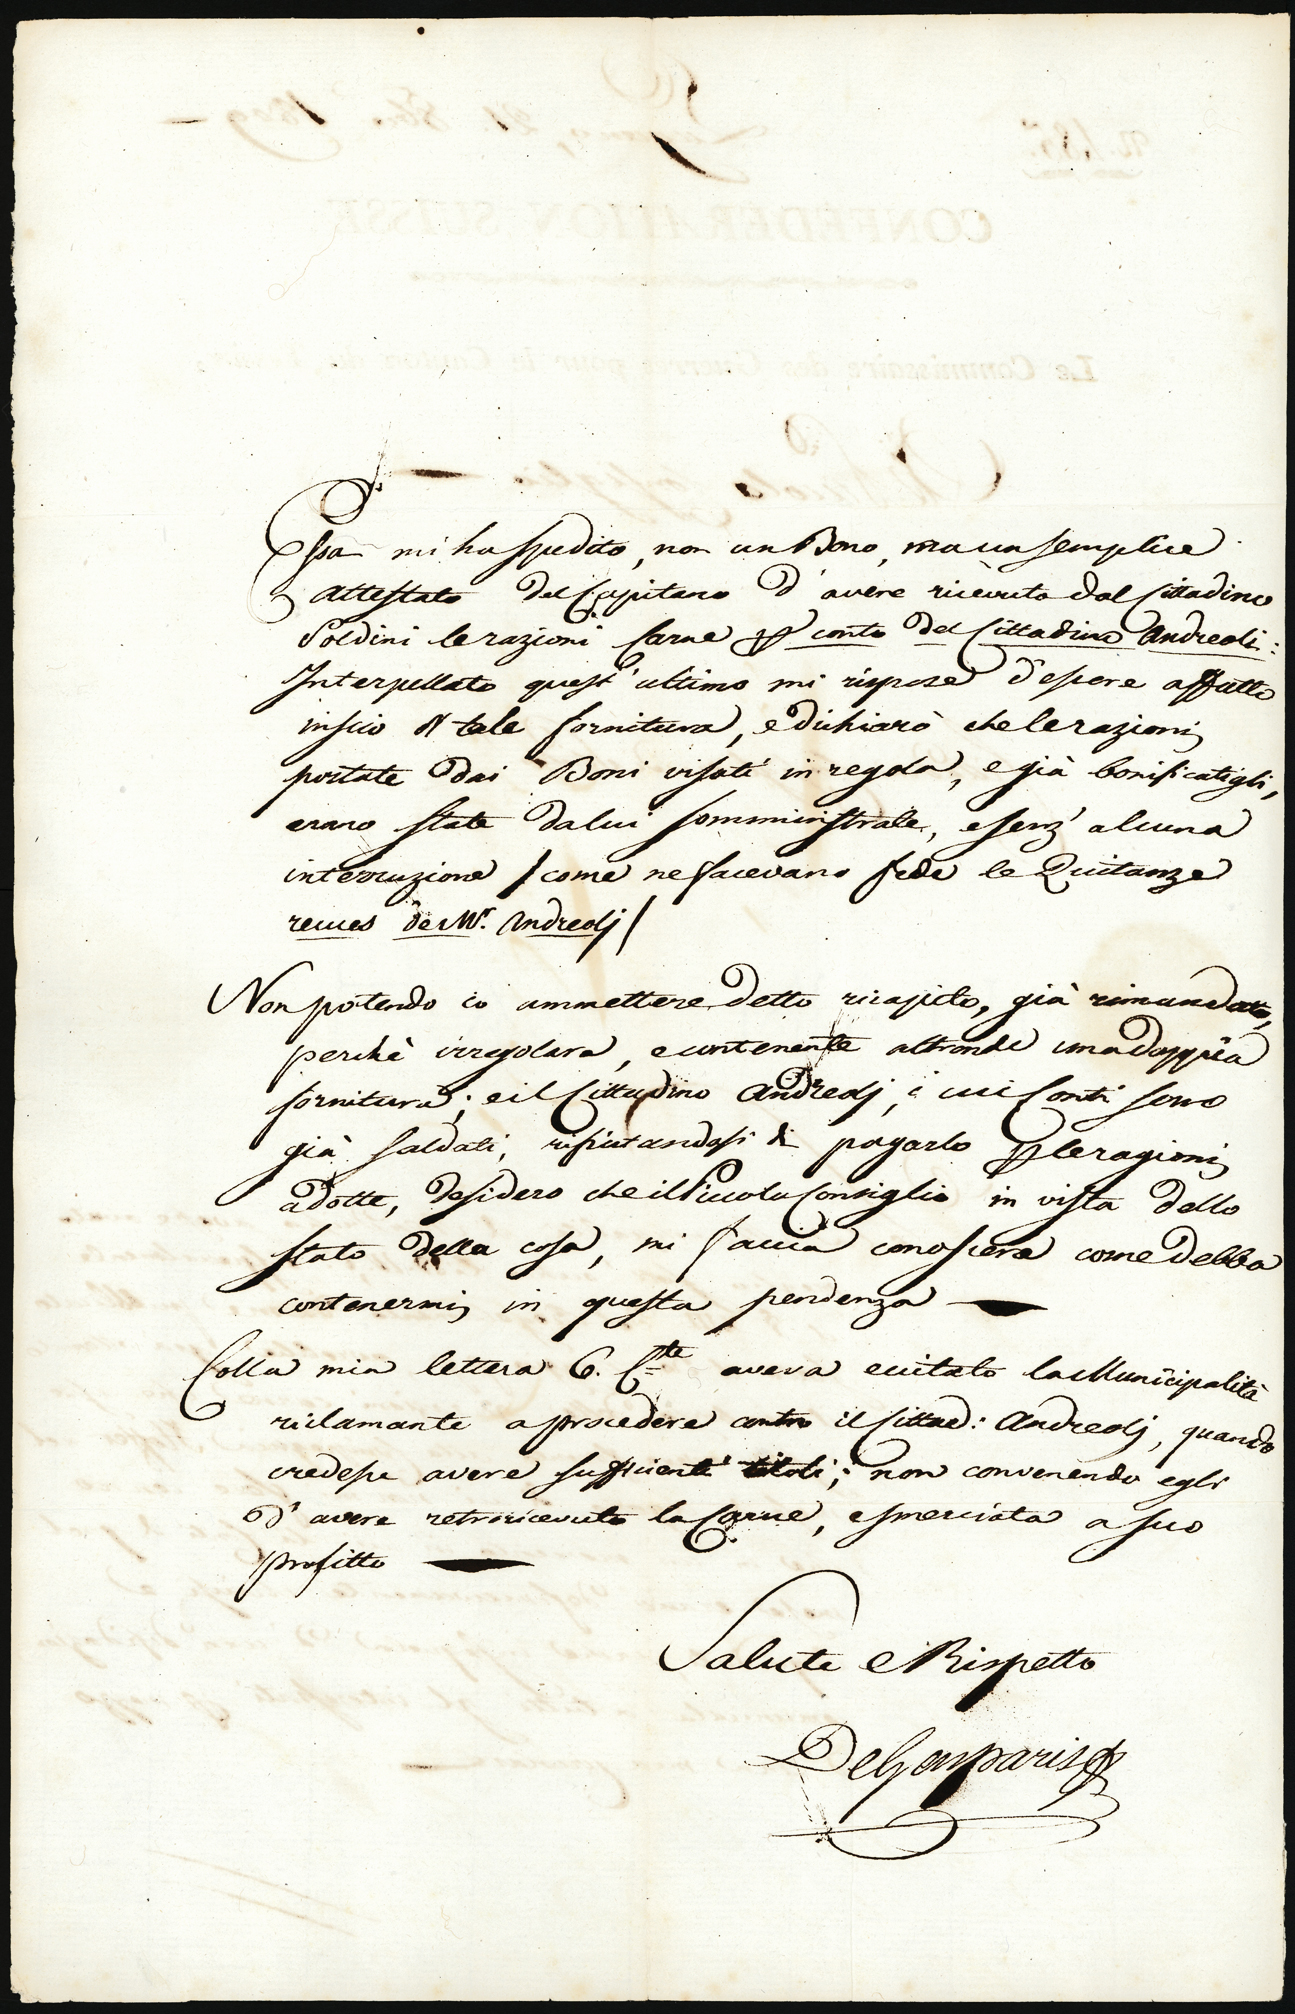 Essa mi ha spedito, non un Bono, ma un semplice
attestato del Capitano d'avere ricevuto dal Cittadino
Soldini le razioni Carne p conto del Cittadino Andreoli:
Interpellato quest'ultimo mi rispose d'essere affatto
inscio di tale fornitura, e dichiarò che le razioni
portate dai Boni visati in regola, e già bonificatigli,
erano state da lui somministrate, e senz'alcuna
interruzione / come ne facevano fede le Quitanze
reçues de Mr. Andreolj /
Non potendo io ammettere detto ricapito, già rimandato,
perchè irregolare, e contenente altronde una doppia
fornitura; e il Cittadino Andreolj, i cui Conti sono
già saldati, rifiutandosi di pagarlo p le ragioni
adotte, desidero che il Piccolo Consiglio in vista dello
stato della cosa, mi faccia conoscere come debba
contenermi in questa pendenza —
Colla mia lettera 6. Cte aveva ecitato la Municipalità
riclamante a procedere contro il Cittad: Andreolj, quando
credesse avere sufficienti titoli; non convenendo egli
d'avere retroricevuto la Carne, e smerciata a suo
profitto —
Salute e Rispetto
DeGasparis